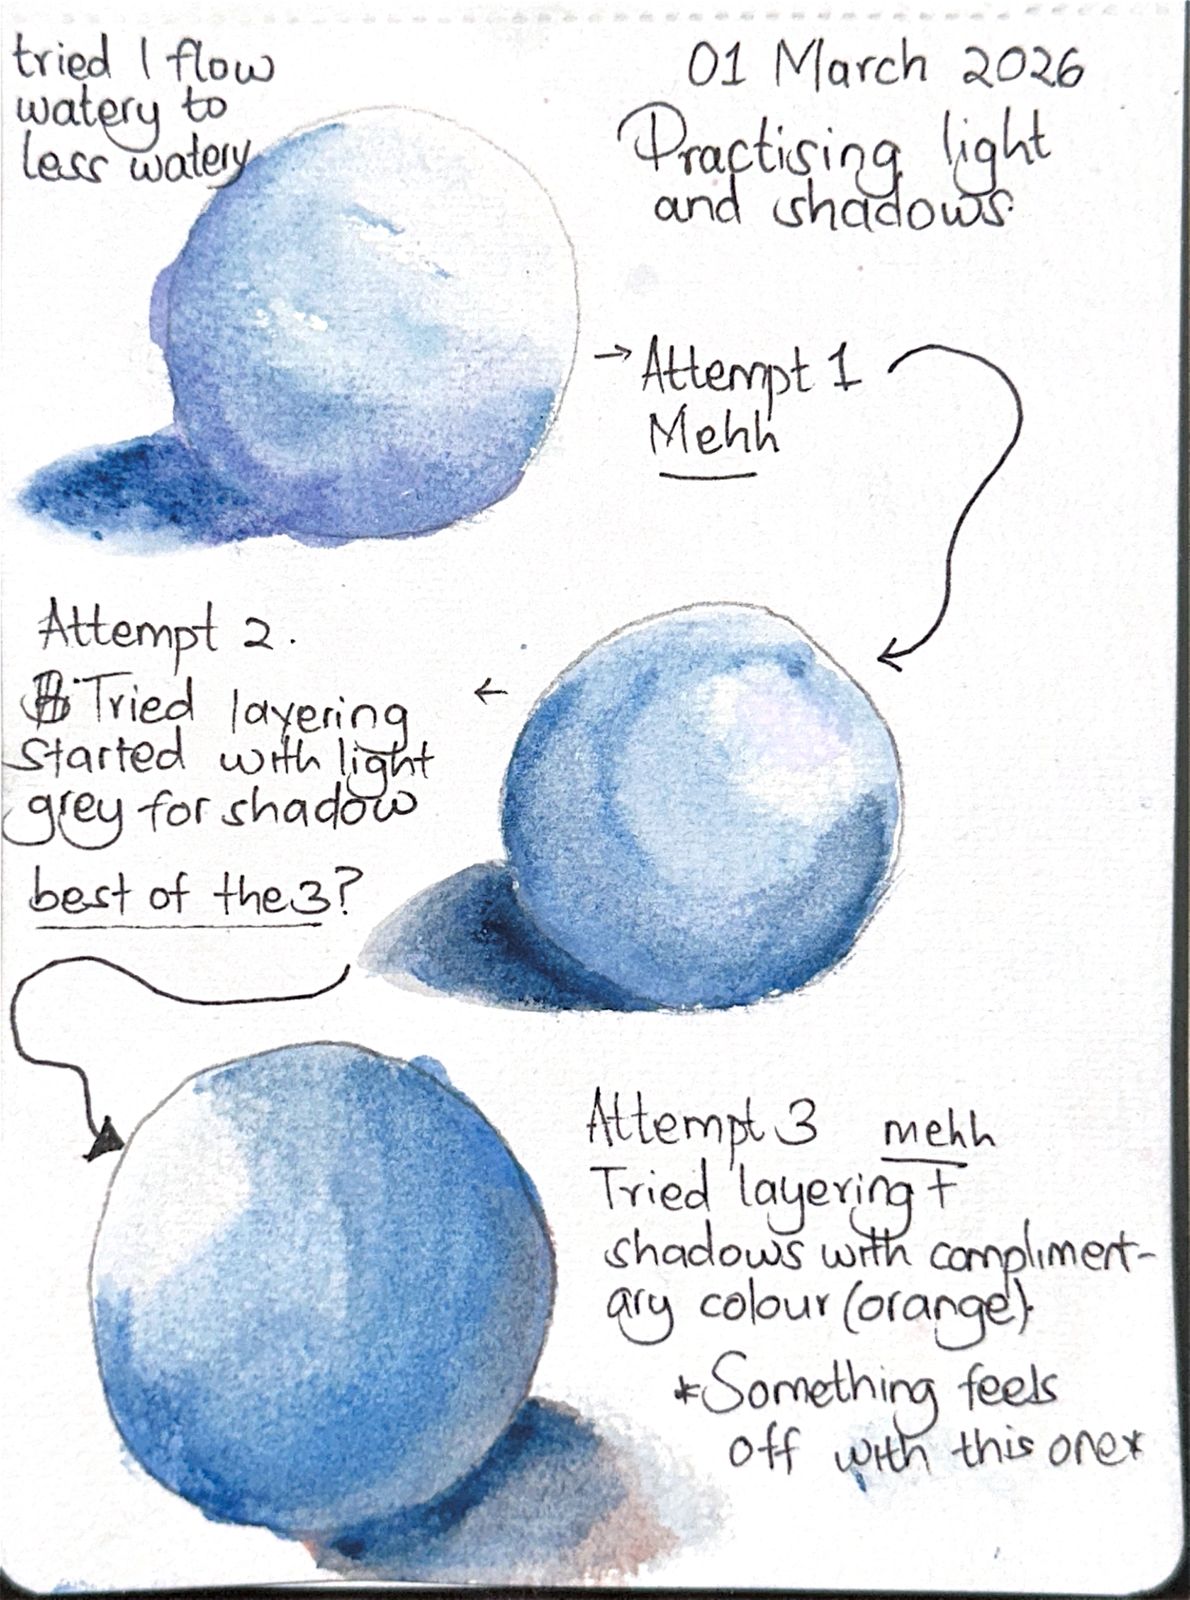 tried 1 flow
watery to
less watery
01 March 2026
Practising light
and shadows.
→ Attempt 1
Mehh
Attempt 2.
Tried layering
started with light
grey for shadow
best of the 3?
Attempt 3 mehh
Tried layering +
shadows with compliment-
ary colour (orange).
*Something feels
off with this one*